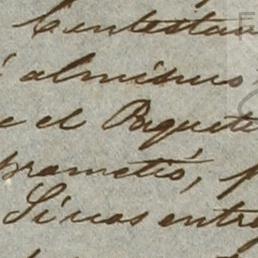 Contestan
al mismo
e el Paquete
prometió, p
Sinos entre